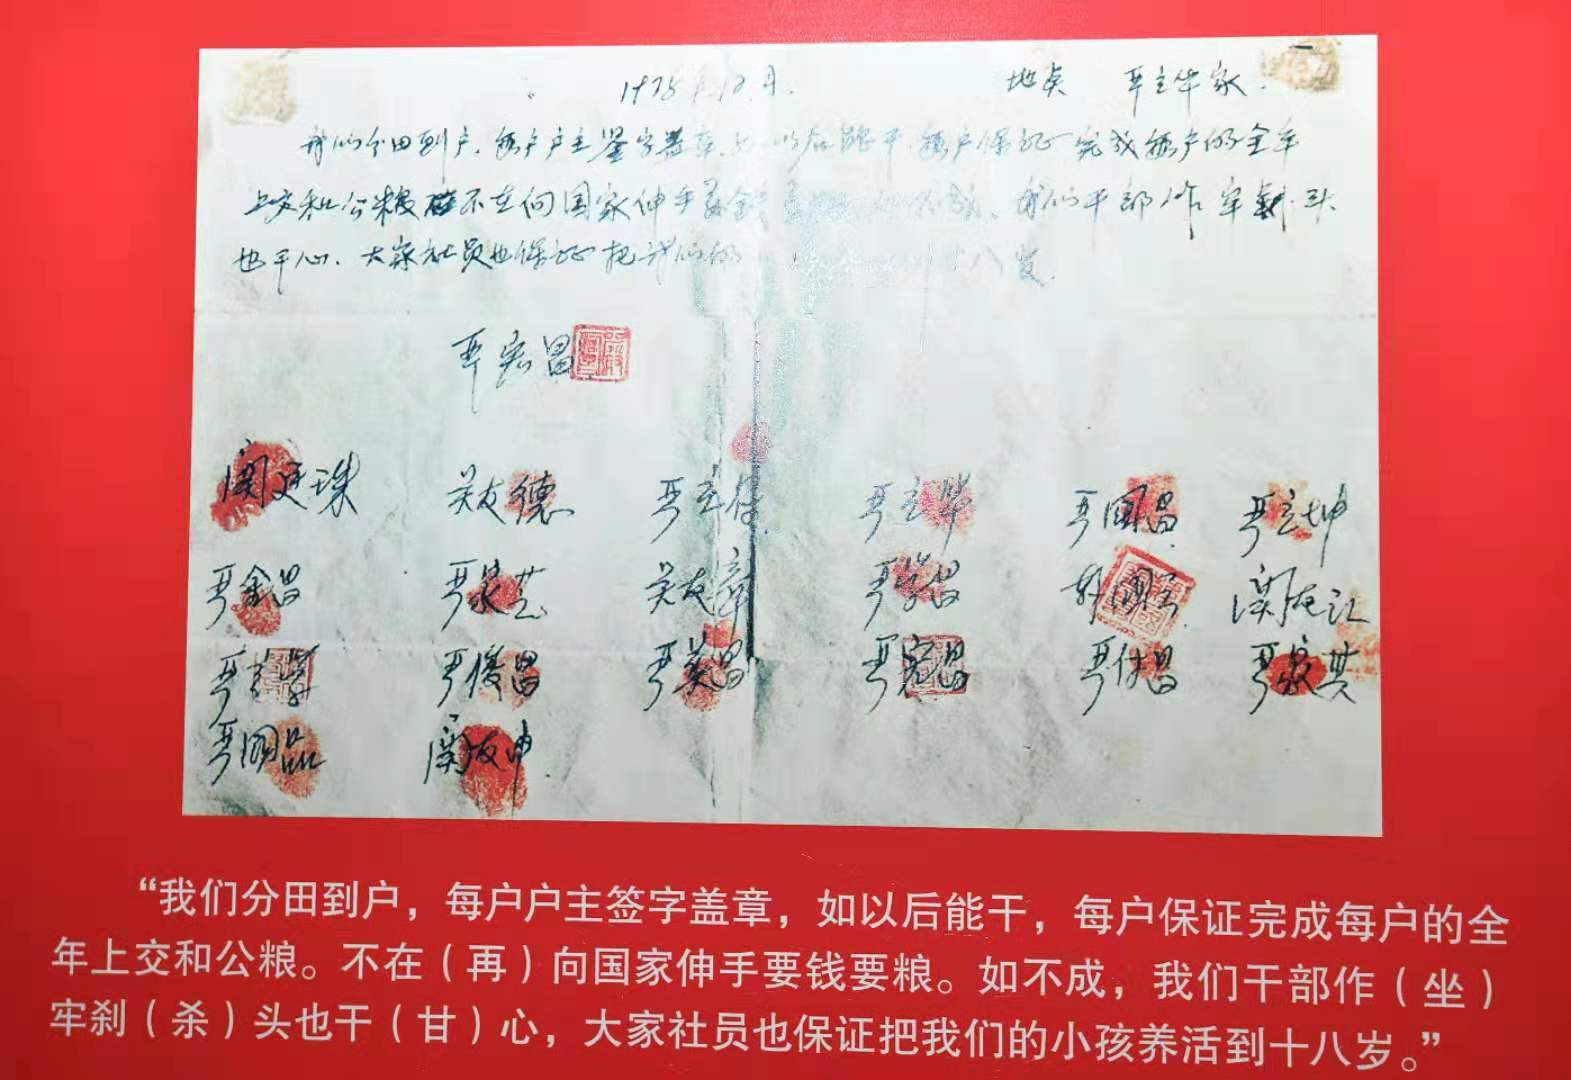 1978年12月. 地点 严立华家.
我们分田到户, 每户户主签字盖章, 如以后能干, 每户保证完成每户的全年
上交和公粮 不在向国家伸手要钱要粮 如不成, 我们干部作牢刹头
也干心, 大家社员也保证把我们的 十八岁.
严宏昌
关廷珠 关友德 严立付 严立华 严国昌 严立坤
严金昌 严家芝 关友章 严学昌 韩国云 关友江
严立学 严俊昌 严美昌 严宏昌 严付昌 严家其
严国品 关友申
“我们分田到户，每户户主签字盖章，如以后能干，每户保证完成每户的全
年上交和公粮。不在（再）向国家伸手要钱要粮。如不成，我们干部作（坐）
牢刹（杀）头也干（甘）心，大家社员也保证把我们的小孩养活到十八岁。”